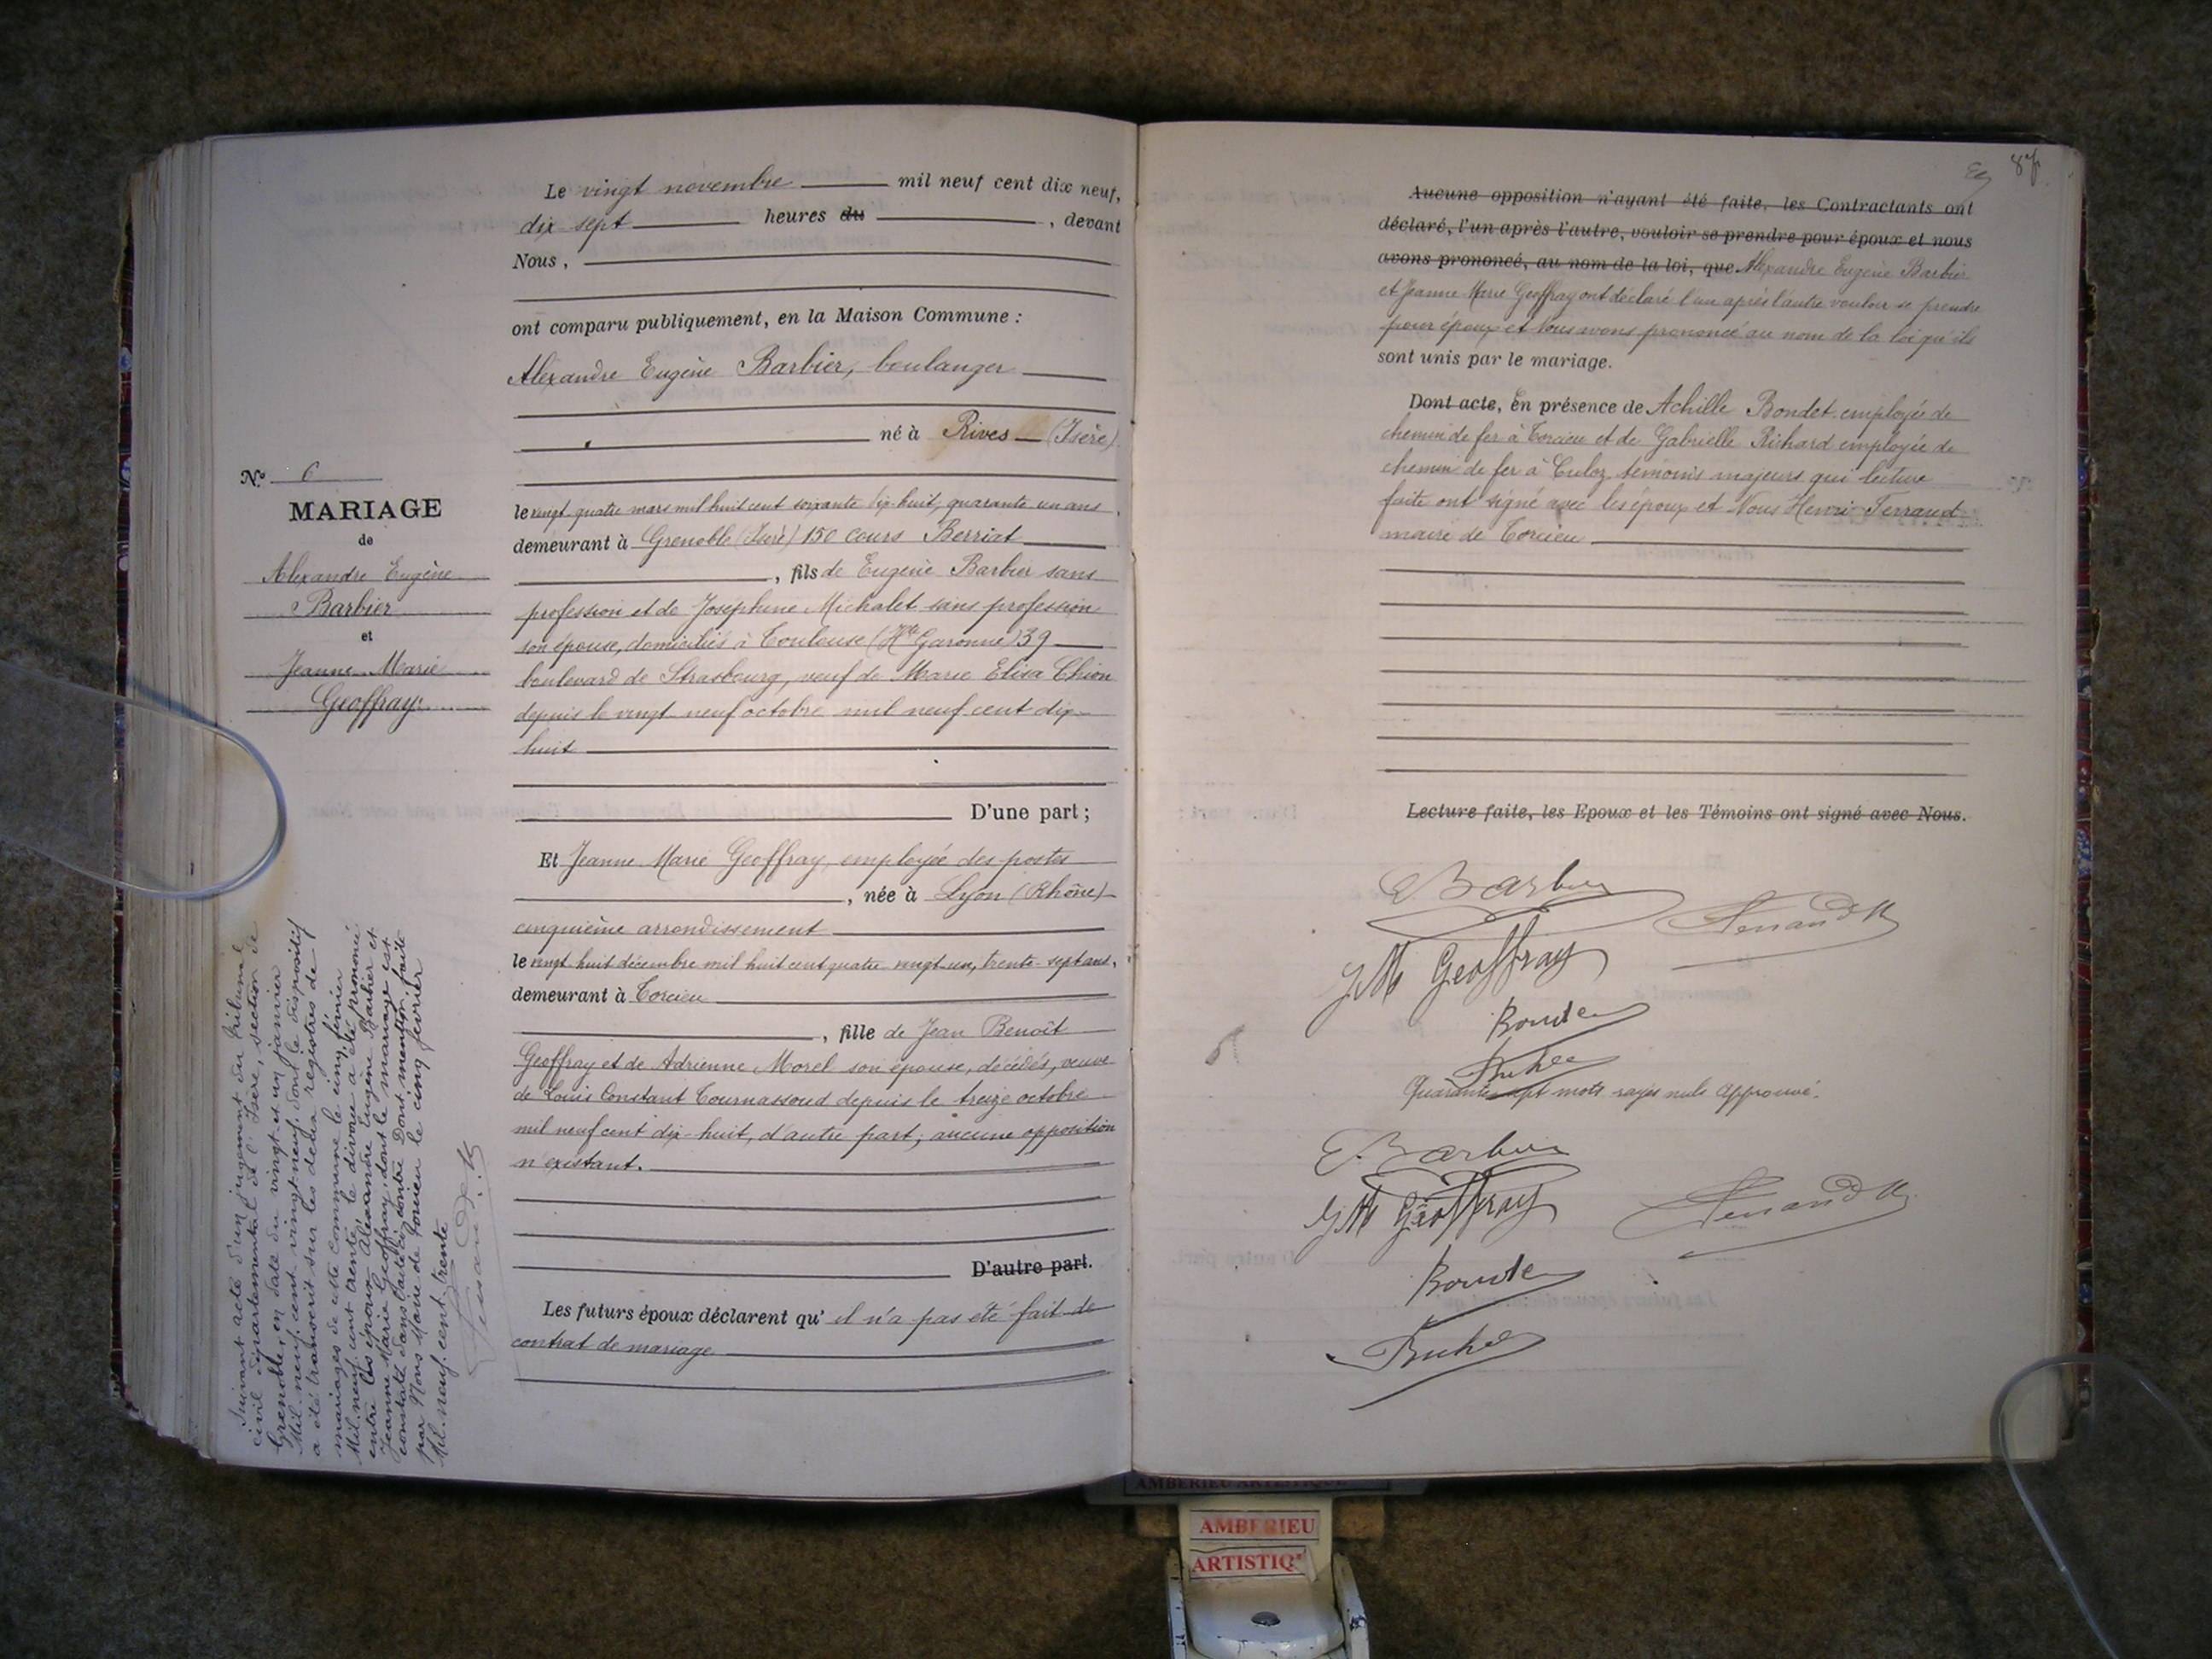 Le vingt novembre mil neuf cent dix neuf,
dix sept heures du , devant
Nous,
ont comparu publiquement, en la Maison Commune :
Alexandre Eugène Barbier, boulanger
né à Rives (Isère)
le vingt quatre mars mil huit cent soixante dix-huit, quarante un ans,
demeurant à Grenoble (Isère) 150 cours Berriat
, fils de Eugène Barbier sans
profession et de Joséphine Michalet sans profession
son épouse, domiciliés à Toulouse (Hte Garonne) 39
boulevard de Strasbourg, veuf de Marie Elisa Chion
depuis le vingt neuf octobre mil neuf cent dix-
huit
D'une part ;
Et Jeanne Marie Geoffray, employée des postes
, née à Lyon (Rhône)
cinquième arrondissement
le vingt huit décembre mil huit cent quatre vingt-un, trente-sept ans,
demeurant à Torcieu
, fille de Jean Benoit
Geoffray et de Adrienne Morel son épouse, décédés, veuve
de Louis Constant Tournassoud depuis le treize octobre
mil neuf cent dix-huit, d'autre part; aucune opposition
n'existant.
D'autre part.
Les futurs époux déclarent qu' il n'a pas été fait de
contrat de mariage
N° 6
MARIAGE
de
Alexandre Eugène
Barbier
et
Jeanne Marie
Geoffray
Suivant acte d'un jugement du Tribunal
civil départemental de l'Isère, section de
Grenoble, en date du vingt et un janvier
Mil neuf cent vingt-neuf, dont le dispositif
a été transcrit sur les deux registres de
mariages de cette commune le cinq février
Mil neuf cent trente, le divorce a été prononcé
entre les époux Alexandre Eugène Barbier et
Jeanne Marie Geoffray, dont le mariage est
constaté dans l'acte ci-contre. Dont mention faite
par Nous Maire de Torcieu le cinq février
Mil neuf cent trente
87
Aucune opposition n'ayant été faite, les Contractants ont
déclaré, l'un après l'autre, vouloir se prendre pour époux et nous
avons prononcé, au nom de la loi, que Alexandre Eugène Barbier
et Jeanne Marie Geoffray ont déclaré l'un après l'autre vouloir se prendre
pour époux et Nous avons prononcé au nom de la loi qu'ils
sont unis par le mariage.
Dont acte, En présence de Achille Bondet employé de
chemin de fer à Torcieu et de Gabrielle Richard employée de
chemin de fer à Culoz, témoins majeurs qui lecture
faite ont signé avec les époux et Nous Henri Ferrand
maire de Torcieu
Lecture faite, les Epoux et les Témoins ont signé avec Nous.
E Barbier
Ferrand H
JM Geoffray
Quarante sept mots rayés nuls approuvé.
E. Barbier
JM Geoffray
Ferrand H
AMBERIEU ARTISTIQUE
AMBERIEU
ARTISTIQ